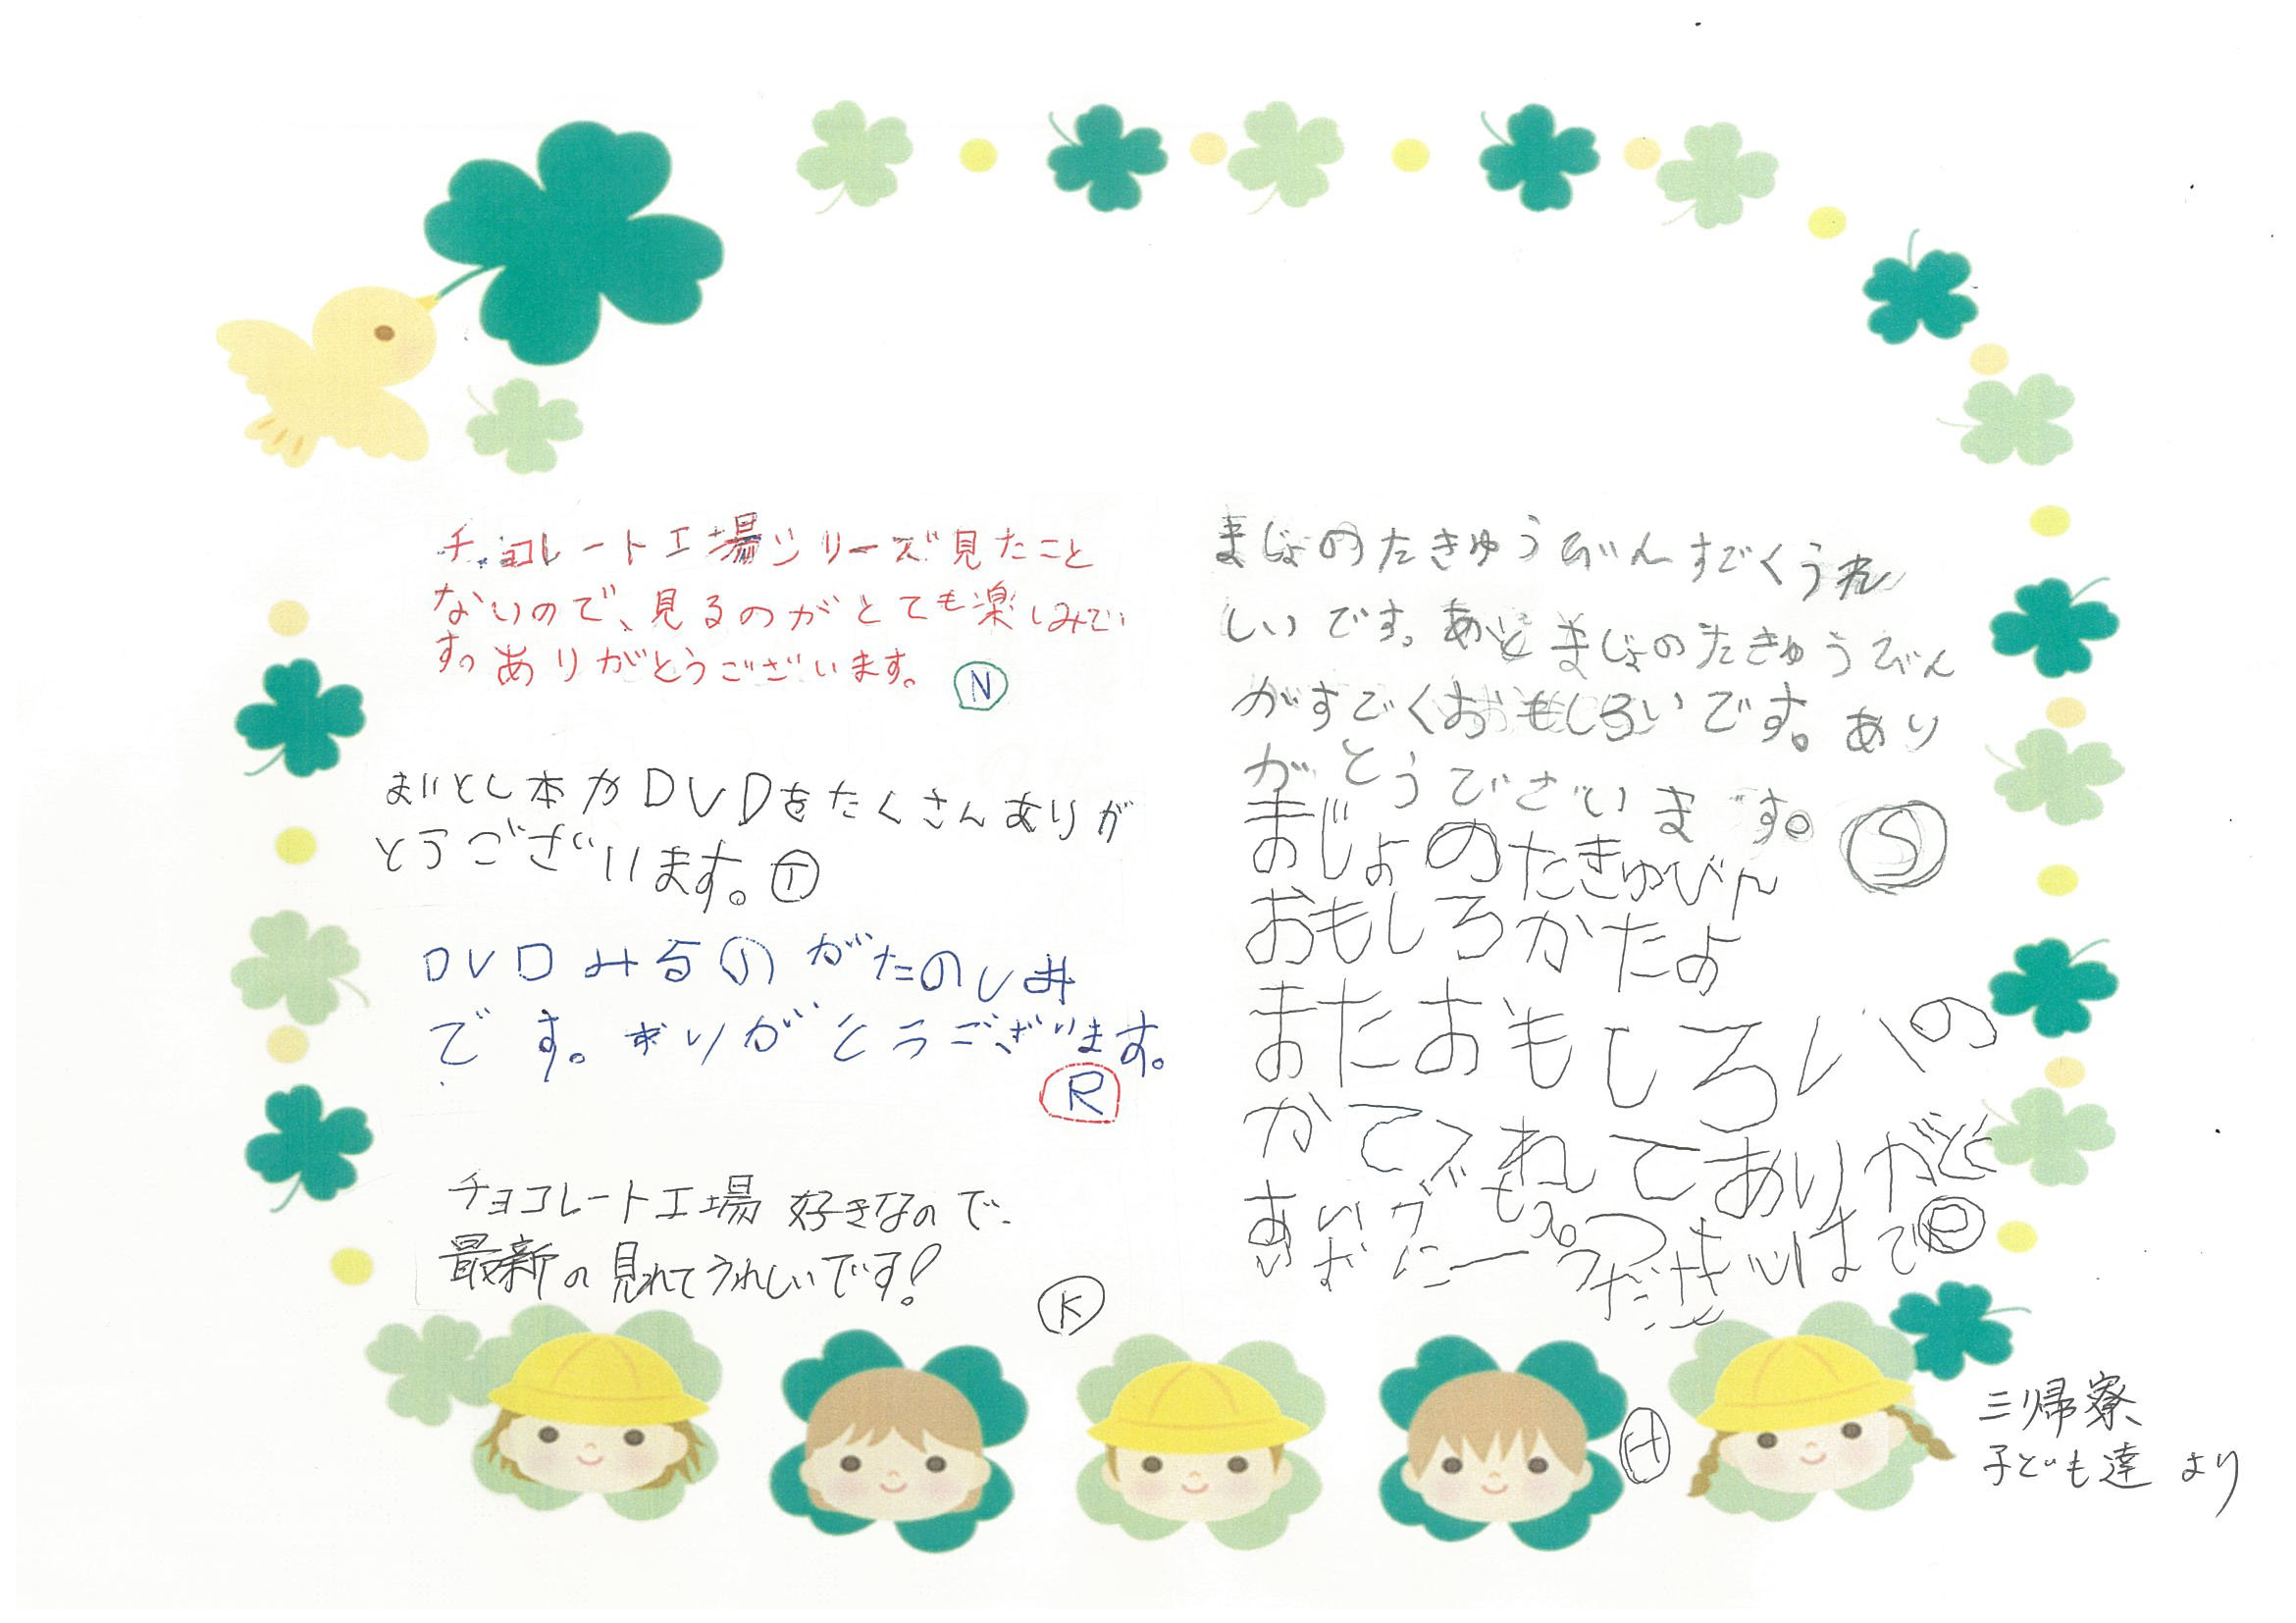 チョコレート工場シリーズ見たこと
ないので、見るのがとても楽しみで
す。ありがとうございます。 N
まいとし本かDVDをたくさんありが
とうございます。 T
DVDみるのがたのしみ
です。ありがとうございます。
R
チョコレート工場 好きなので、
最新の見れてうれしいです!
K
まじょのたきゅうびんすごくうれ
しいです。あとまじょのたきゅうびん
がすごくおもしろいです。あり
がとうございます。 S
まじょのたきゅびん
おもしろかたよ
またおもしろいの
かてくれてありがと
H
三帰寮
子ども達 より